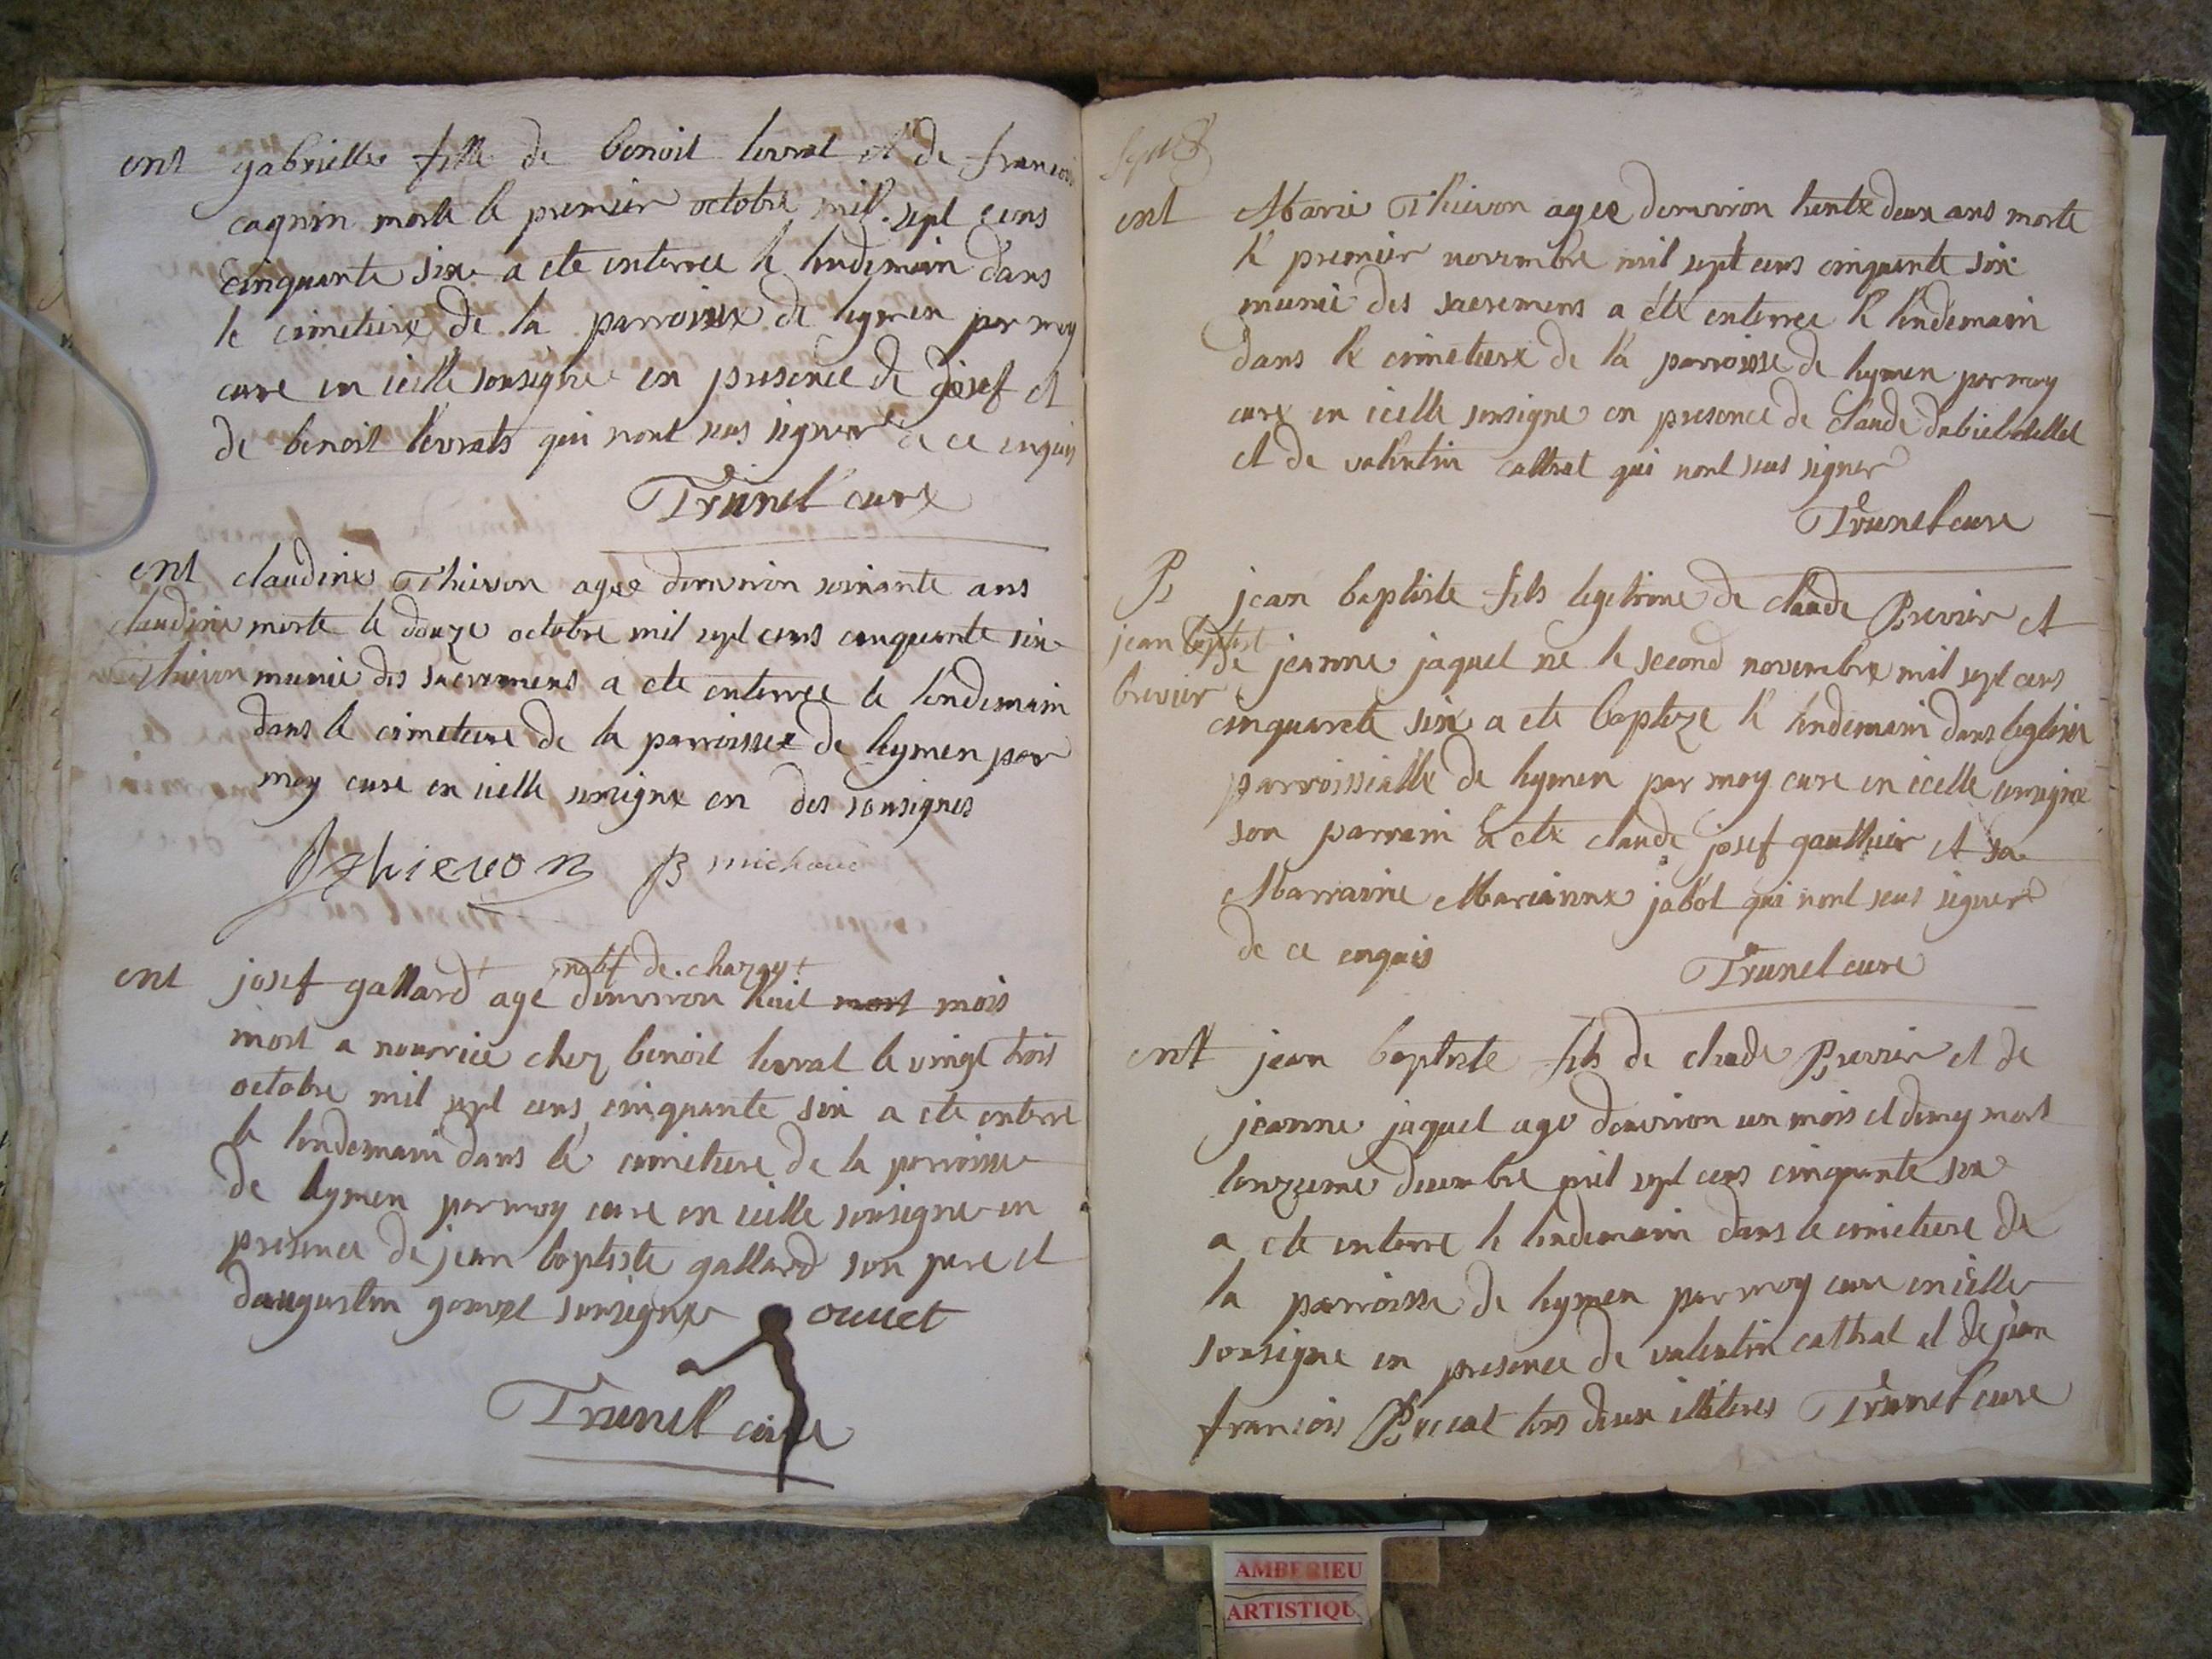 ent gabrielle fille de benoit levrat et de francois
cagnin morte le premier octobre mil sept cens
cinquante six a ete enterree le lendemain dans
le cimetiere de la parroisse de leymen par moy
cure en icelle sousigne en presence de josef et
de benoit levrats qui nont seus signer de ce enquis
Trunel cure
ent claudine Thievon agee denviron soixante ans
claudine morte le douze octobre mil sept cens cinquante six
Thievon munie des sacremens a ete enterree le lendemain
dans le cimetiere de la parroisse de leymen par
moy cure en icelle sousigne en des sousignes
Jthievon B michaud
natif de chazay
ent josef gallard age denviron huit mort mois
mort a nourrice chez benoit levrat le vingt trois
octobre mil sept cens cinquante six a ete enterre
le lendemain dans le cimetiere de la parroisse
de leymen par moy cure en icelle sousigne en
presence de jean baptiste gallard son pere et
daugustin sousigne
Trunel cure
ent Marie Thievon agee denviron trente deux ans morte
le premier novembre mil sept cens cinquante six
munie des sacremens a été enterree le lendemain
dans le cimetiere de la parroisse de leymen par moy
cure en icelle sousigne en presence de Claude
et de valentin cattrat qui nont seus signer
Trunel cure
B jean baptiste fils legitime de claude Brevier et
jean baptist de jeanne jaquet né le second novembre mil sept cens
brevier cinquante six a ete baptize le lendemain dans leglise
parroissialle de leymen par moy cure en icelle sousigne
son parrain a ete claude josef gauthier et sa
Marraine Marianne jabot qui nont seus signer
de ce enquis
Trunel cure
ent jean baptiste fils de claude Brevier et de
jeanne jaquet age denviron un mois et demy mort
lonzieme decembre mil sept cens cinquante six
a ete enterre le lendemain dans le cimetiere de
la parroisse de leymen par moy cure en icelle
sousigne en presence de valentin cattrat et de jean
francois Buccat tous deux illiteres Trunel cure
AMBERIEU
ARTISTIQU